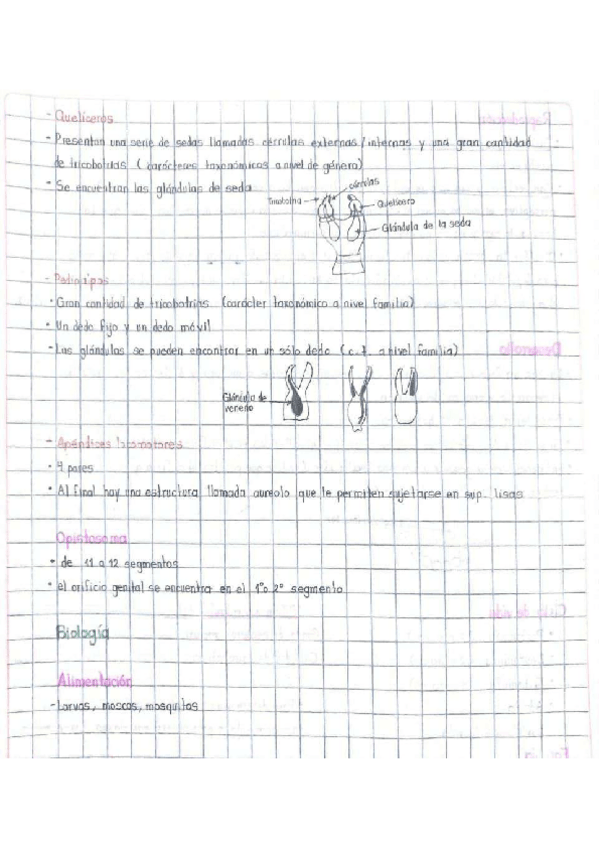 - Quelíceros
- Presentan una serie de sedas llamadas cérrulas externas/internas y una gran cantidad
de tricobotrias (carácteres taxonómicos a nivel de género)
• Se encuentran las glándulas de seda
cérrulas
Quelícero
Glándula de la seda
- Pedipalpos
• Gran cantidad de tricobotrias (carácter taxonómico a nivel familia)
• Un dedo fijo y un dedo móvil
- Las glándulas se pueden encontrar en un sólo dedo (c.t. a nivel familia)
Glándula de
veneno
- Apéndices locomotores
• 4 pares
• Al final hay una estructura llamada aureolo que le permiten sujetarse en sup. lisas
Opistosoma
• de 11 a 12 segmentos
• el orificio genital se encuentra en el 1° o 2° segmento
Biología
Alimentación
- Larvas, moscas, mosquitos